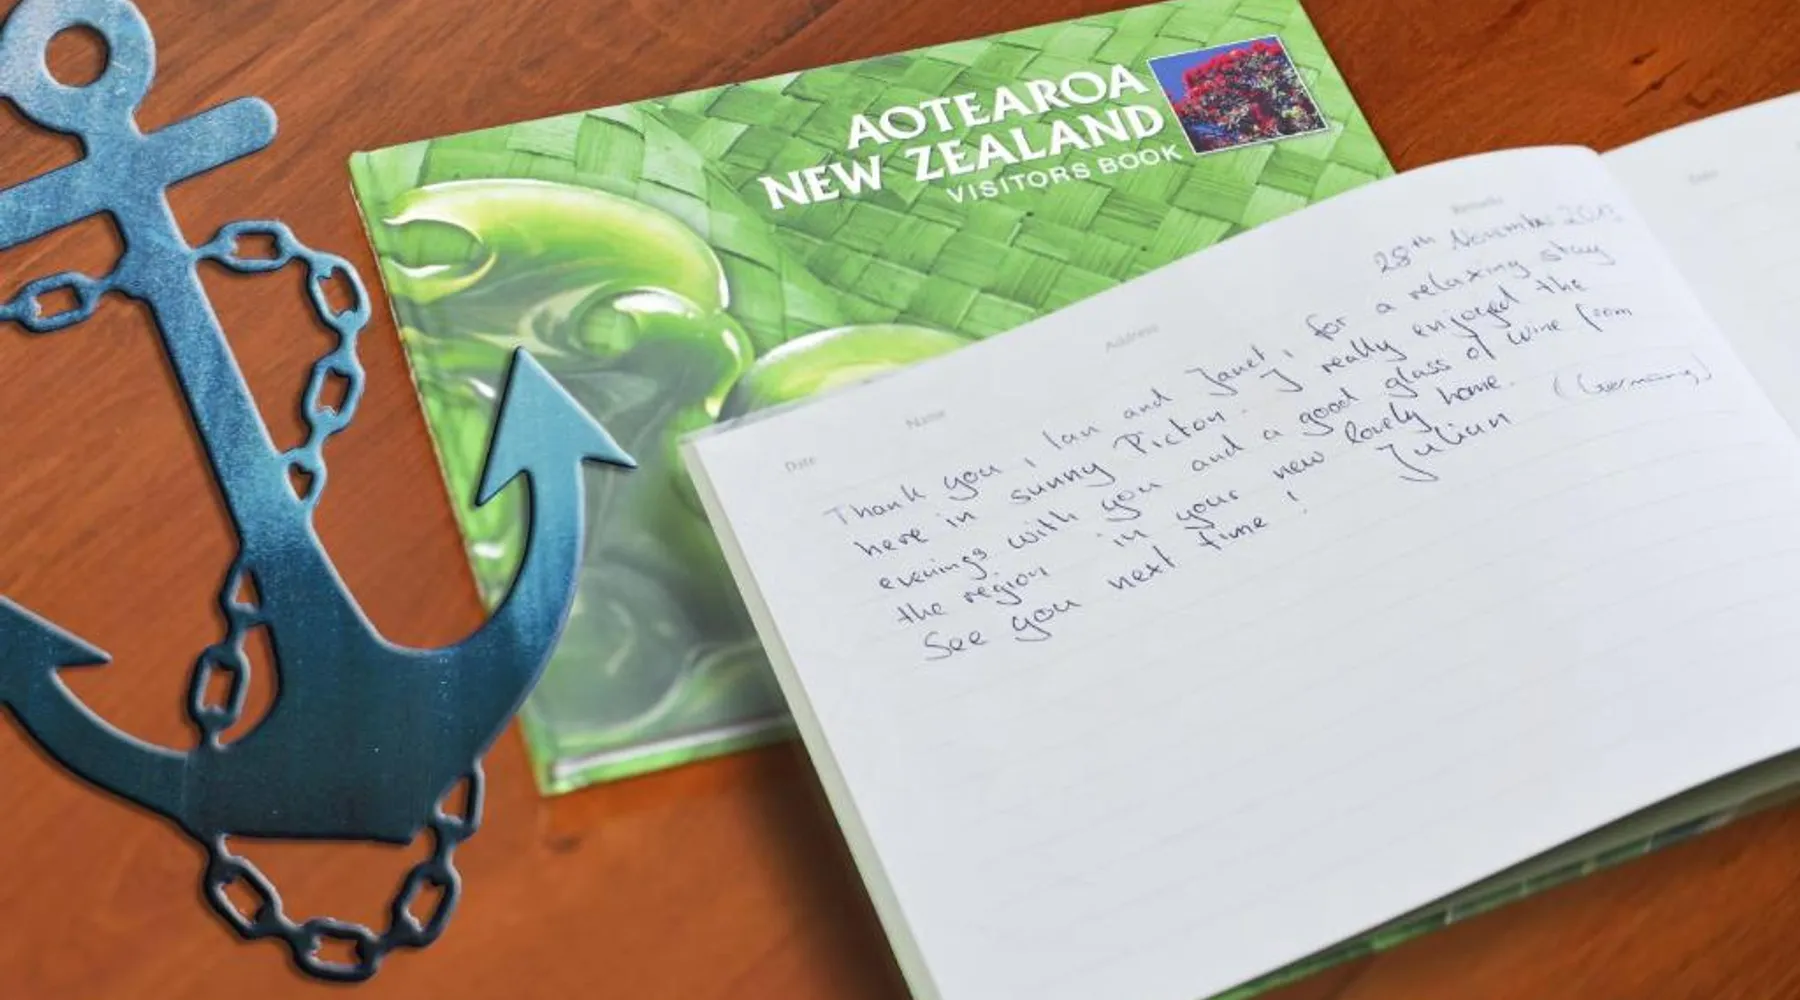 AOTEAROA
NEW ZEALAND
VISITORS BOOK
Date
Name
Address
Remarks
Date
28th November
Thank you, Ian and Janet, for a relaxing stay
here in sunny Picton. I really enjoyed the
evenings with you and a good glass of wine from
the region in your new lovely home.
See you next time! Julian (Germany)